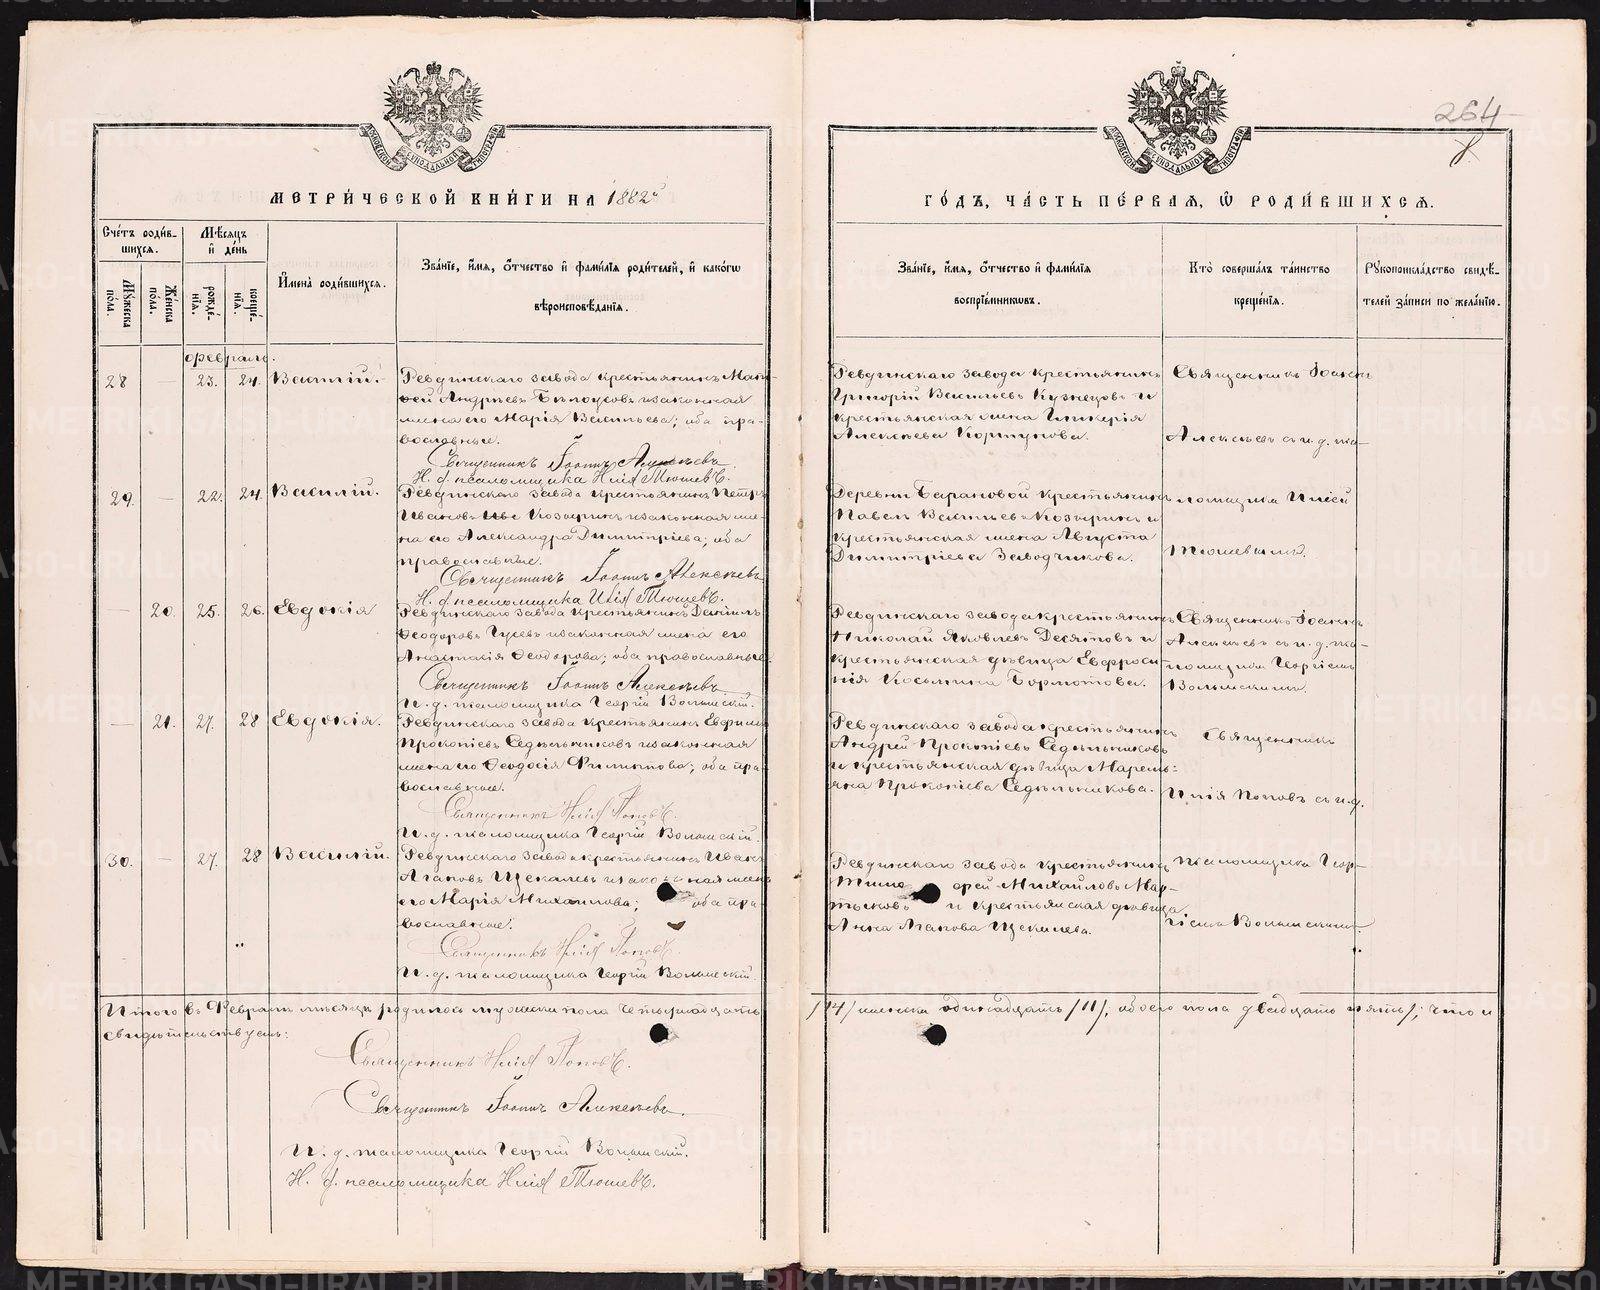 264
МЕТРИ́ЧЕСКОЙ КНИ́ГИ НА 1882й
ГО́ДЪ, ЧА́СТЬ ПЕ́РВАЯ, Ѡ РОДИ́ВШИХСЯ.
Сче́тъ роди́в-
шихся.
Мѣсяцъ
и де́нь
Мꙋжеска
по́ла.
Же́нска
по́ла.
рожде́-
нїя.
креще́-
нїя.
И҆мена̀ роди́вшихся.
Зва́нїе, и҆́мя, о҆́тчество и҆ фами́лїя роди́телей, и҆ како́гѡ
вѣроисповѣ́данїя.
Зва́нїе, и҆́мя, о҆́тчество и҆ фами́лїя
воспрїе́мникѡвъ.
Кто̀ соверша́лъ та́инство
креще́нїя.
Рꙋкоприкла́дство свидѣ́-
телей за́писи по жела́нїю.
Февраль.
28 — 23. 24. Василій.
Ревдинскаго завода крестьянинъ Мат-
ѳей Андреевъ Бѣлоусовъ и законная
жена его Марія Васильева; оба пра-
вославные.
Священникъ Іоаннъ Алексѣевъ
И. д. псаломщика Илія Тюшевъ.
Ревдинскаго завода крестьянинъ
Григорій Васильевъ Кузнецовъ и
крестьянская жена Гликерія
Алексѣева Коршунова.
Священникъ Іоаннъ
Алексѣевъ съ и. д. пса-
29. — 22. 24. Василій.
Ревдинскаго завода крестьянинъ Петръ
Ивановъ Козыринъ и законная же-
на его Александра Димитріева; оба
православные.
Священникъ Іоаннъ Алексѣевъ
И. д. псаломщика Илія Тюшевъ.
Деревни Барановой крестьянинъ
Павелъ Васильевъ Козыринъ и
крестьянская жена Августа
Димитріева Заводчикова.
ломщика Иліей
Тюшевымъ.
— 20. 25. 26. Евдокія
Ревдинскаго завода крестьянинъ Даніилъ
Ѳеодоровъ Гусевъ и законная жена его
Анастасія Ѳеодорова; оба православные.
Священникъ Іоаннъ Алексѣевъ
И. д. псаломщика Георгій Волынскій.
Ревдинскаго завода крестьянинъ
Николай Яковлевъ Десятовъ и
крестьянская дѣвица Евфроси-
нія Косьмина Бормотова.
Священникъ Іоаннъ
Алексѣевъ съ и. д. пса-
ломщика Георгіемъ
Волынскимъ.
— 21. 27. 28 Евдокія.
Ревдинскаго завода крестьянинъ Евфимъ
Прокопіевъ Сѣдельниковъ и законная
жена его Ѳеодосія Филиппова; оба пра-
вославные.
Священникъ Илія Поповъ.
И. д. псаломщика Георгій Волынскій.
Ревдинскаго завода крестьянинъ
Андрей Прокопіевъ Сѣдельниковъ
и крестьянская дѣвица Маремь-
яна Прокопіева Сѣдельникова.
Священникъ
Илія Поповъ съ и. д.
30. — 27. 28 Василій.
Ревдинскаго завода крестьянинъ Иванъ
Агаповъ Щекалевъ и законная жена
его Марія Михаилова; оба пра-
вославные.
Священникъ Илія Поповъ.
И. д. псаломщика Георгій Волынскій.
Ревдинскаго завода крестьянинъ
Тимоѳей Михайловъ Мар-
тьяновъ и крестьянская дѣвица
Анна Агапова Щекалева.
псаломщика Геор-
гіемъ Волынскимъ.
Итого въ Февралѣ мѣсяцѣ родилось мужеска пола четырнадцать /14/ женска одиннадцать /11/, обоего пола двадцать пять/; что и
свидѣтельствуемъ:
Священникъ Илія Поповъ.
Священникъ Іоаннъ Алексѣевъ.
И. д. псаломщика Георгій Волынскій.
И. д. псаломщика Илія Тюшевъ.